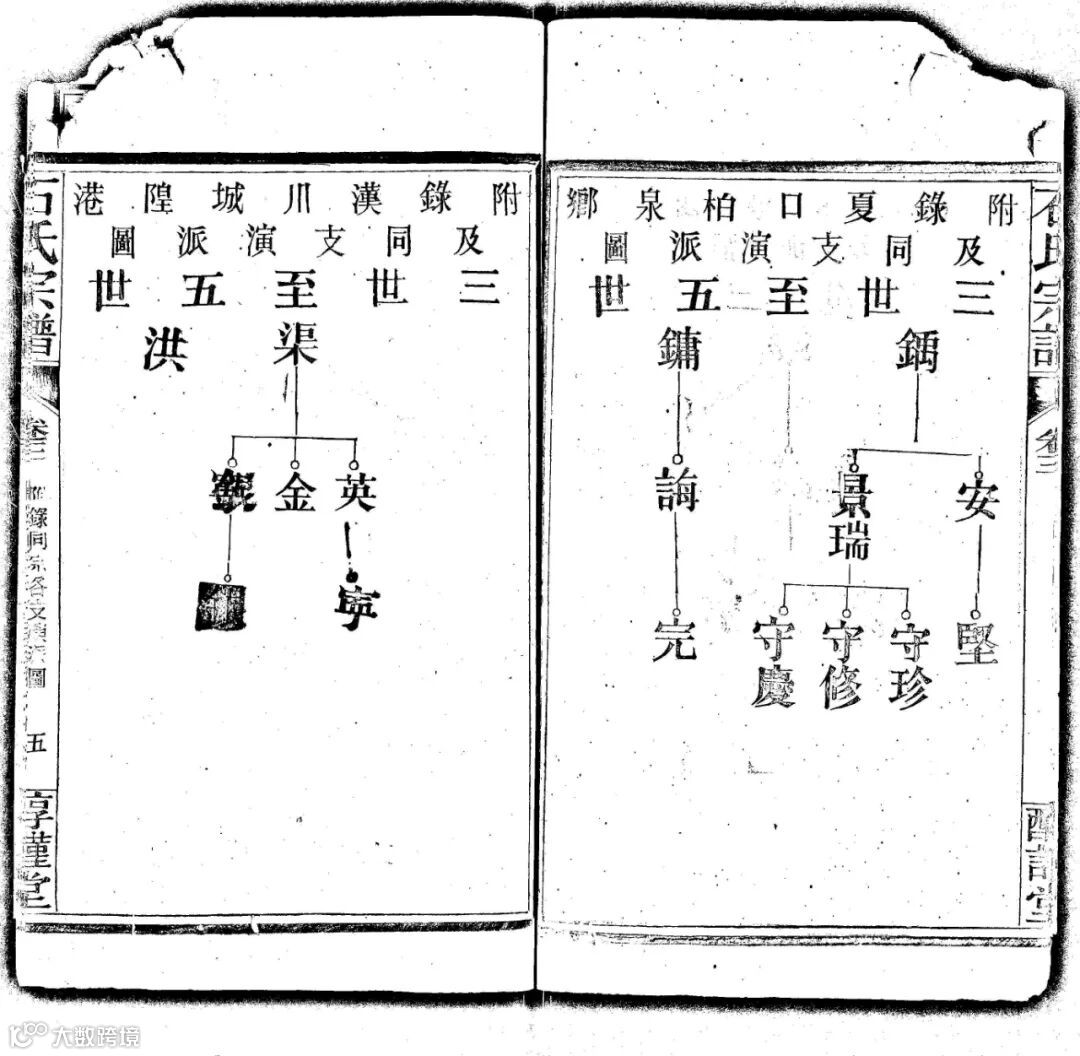 附錄夏口柏泉鄉
及同支演派圖
三世至五世
鍝 鏞
安 景瑞 誨
堅 守珍 守修 守慶 完
附錄漢川城隍港
及同支演派圖
三世至五世
渠 洪
英 金
寧
石氏宗譜
卷三
附錄同派各支演派圖
五
惇謹堂
大数跨境